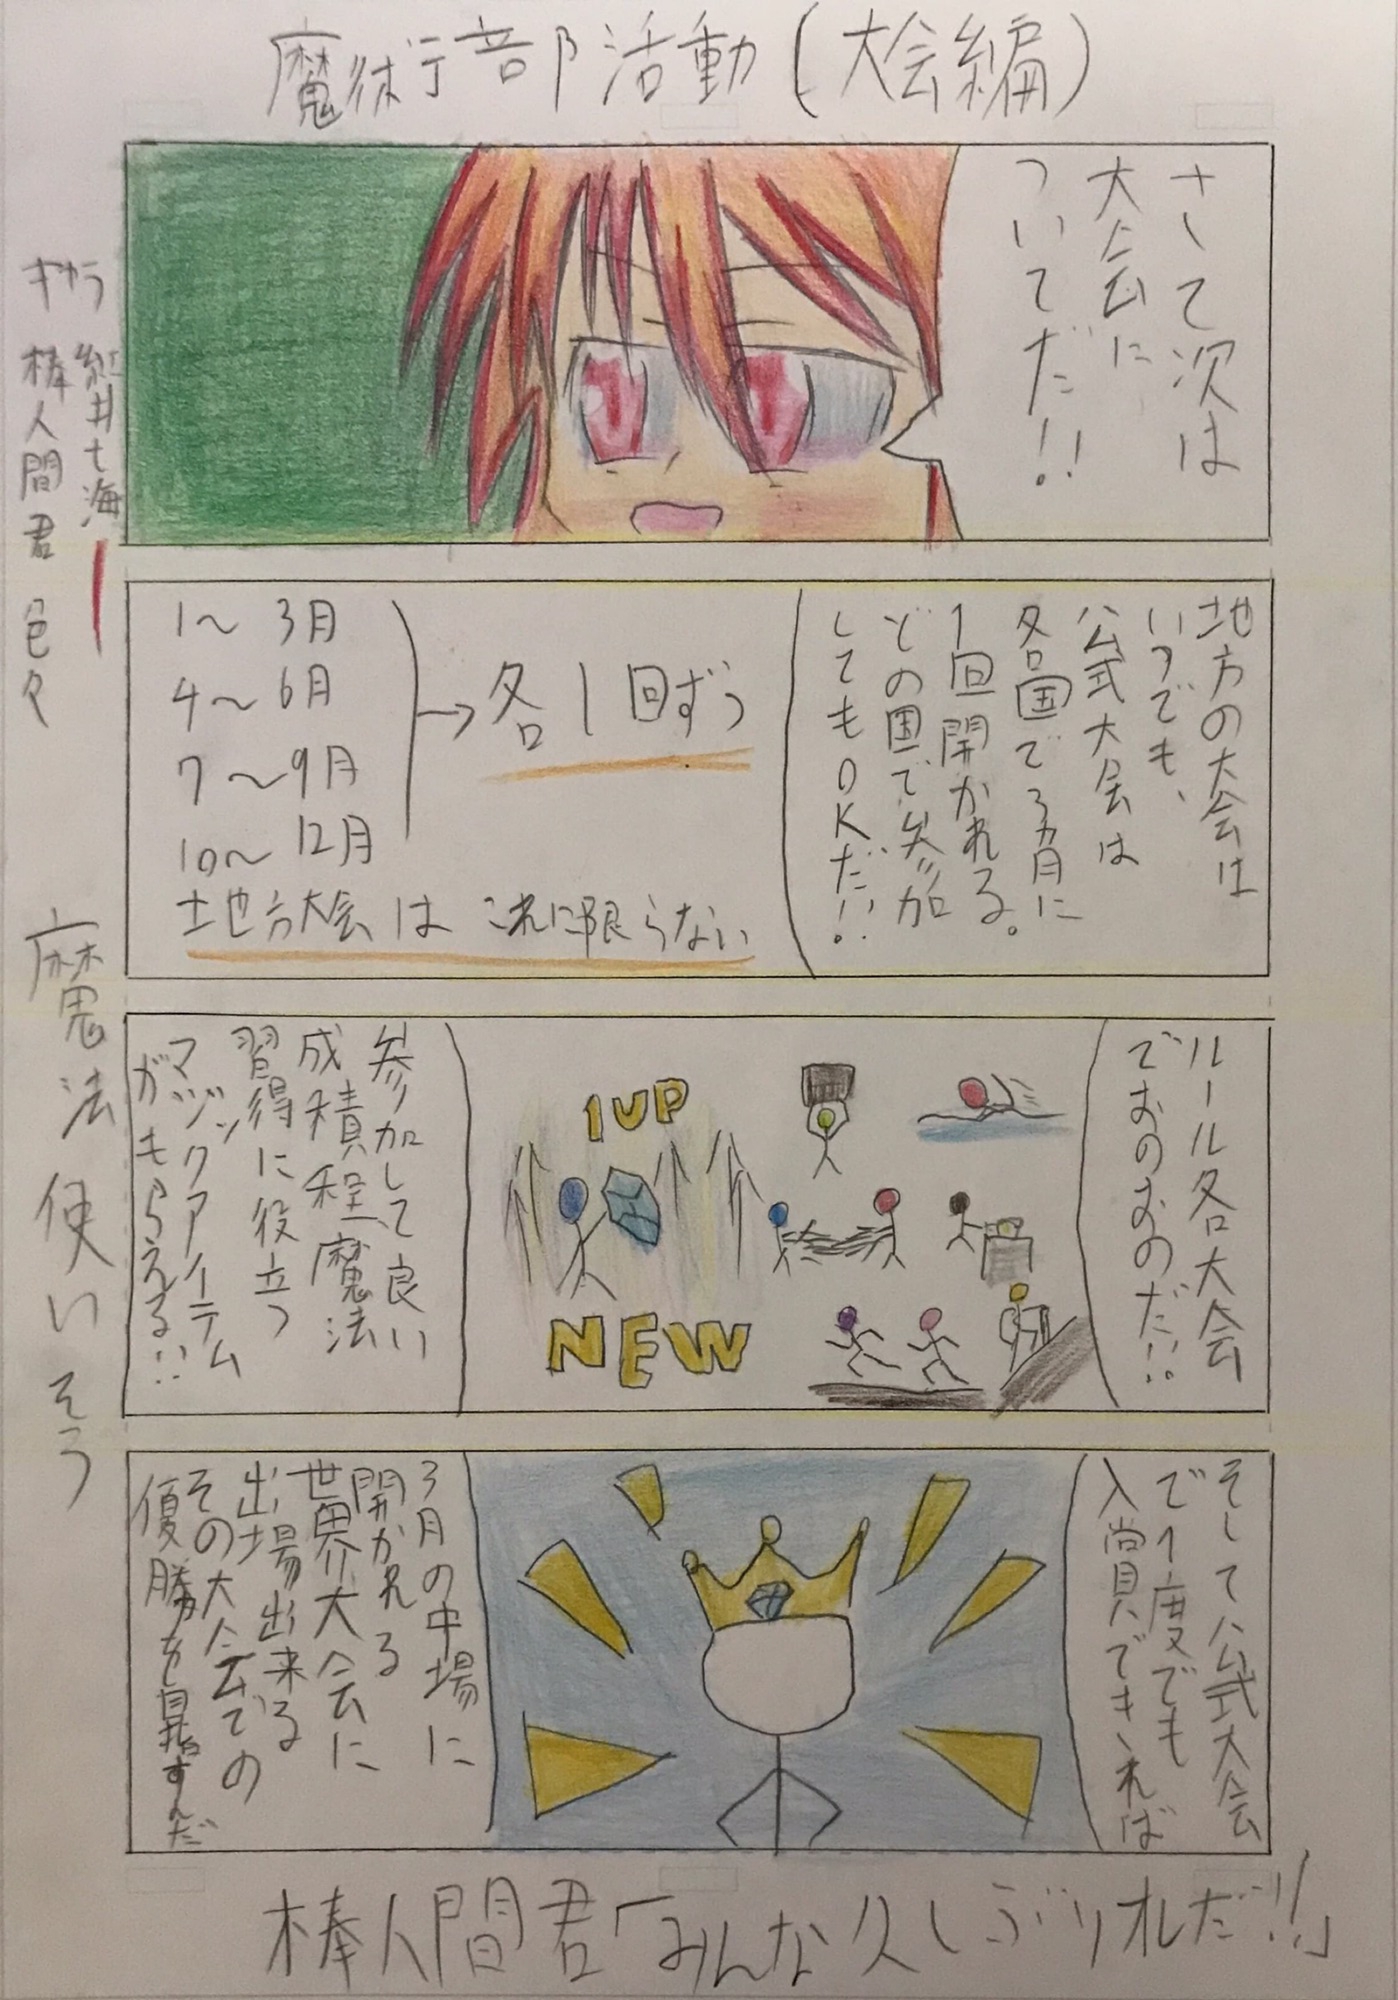 魔術部活動(大会編)
さて次は
大会に
ついてだ!!
キャラ 紅井七海
棒人間君 色々
地方の大会は
いつでも、
公式大会は
各国で3ヵ月に
1回開かれる。
どの国で参加
してもOKだ!!
1〜3月
4〜6月
7〜9月
10〜12月
→各1回ずつ
地方大会はこれに限らない
ルール各大会
でおのおのだ!!
1UP
NEW
参加して良い
成積程魔法
習得に役立つ
マジックアイテム
がもらえる!!
そして公式大会
で1度でも
入賞できれば
3月の中場に
開かれる
世界大会に
出場出来る
その大会での
優勝を目指すんだ
魔法使いそう
棒人間君「みんな久しぶりオレだ!!」